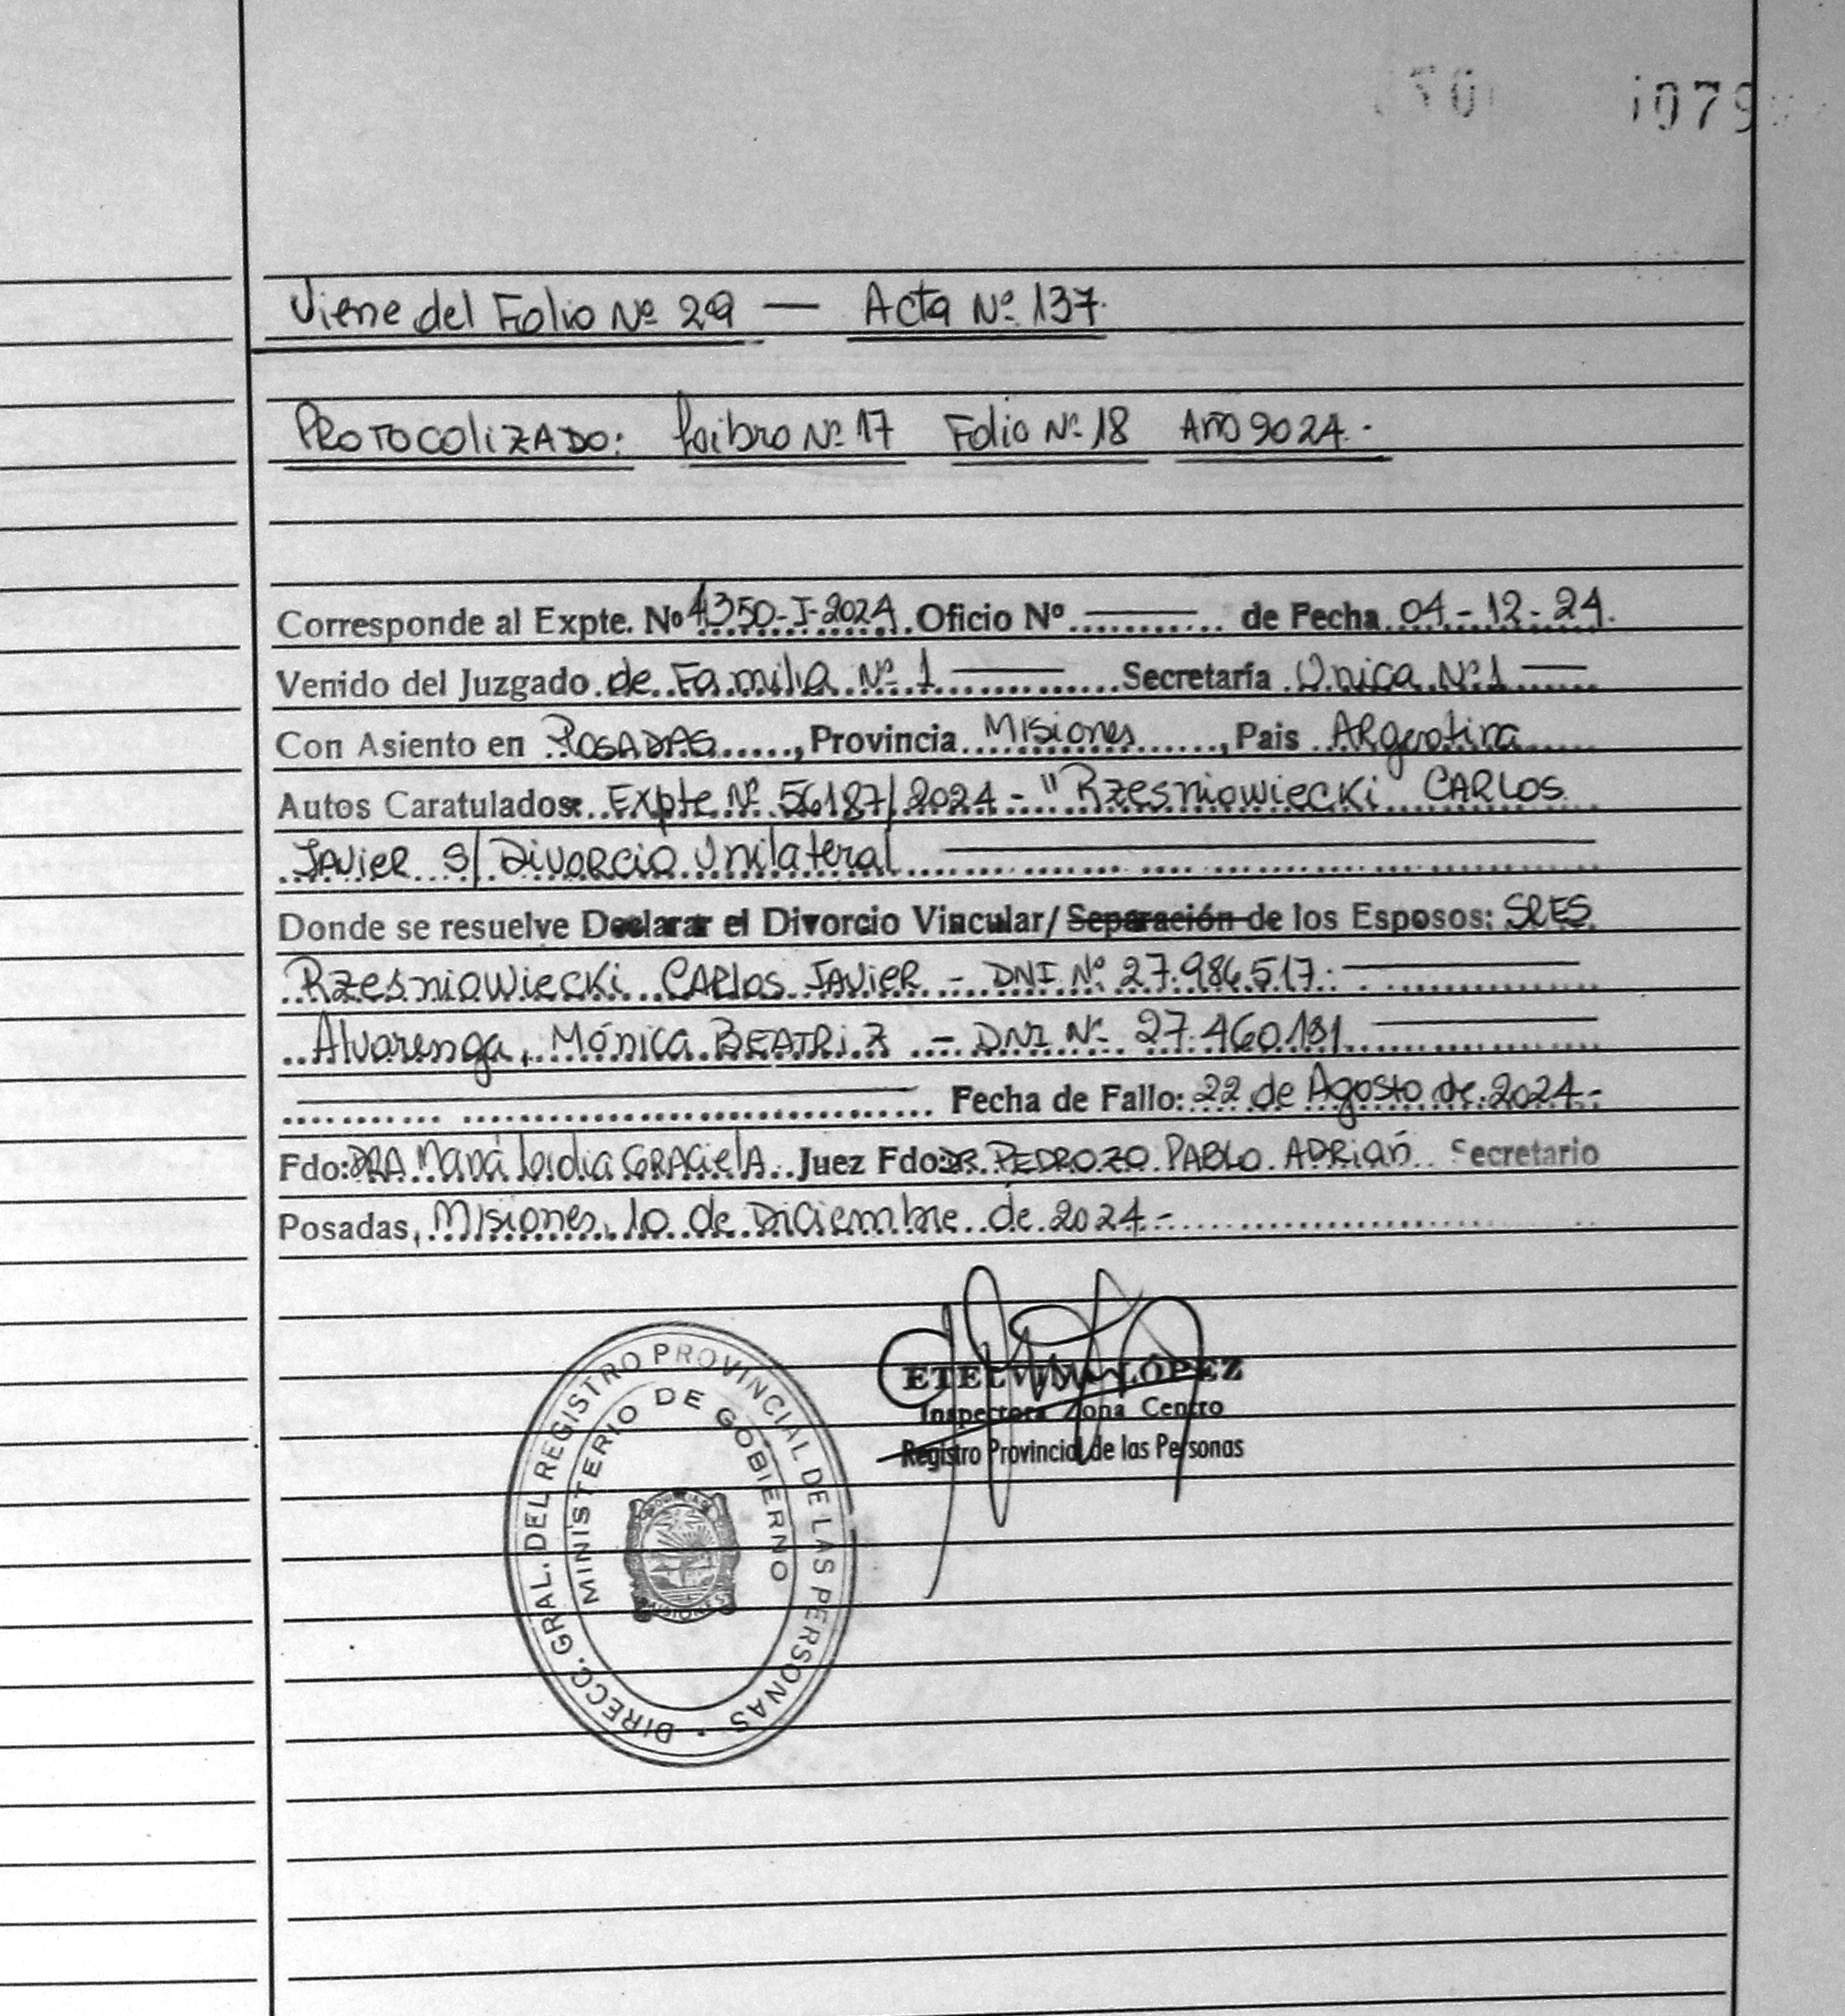 1079
Viene del Folio Nº 29 — Acta Nº 137.
PROTOCOLIZADO: Libro Nº 17 Folio Nº 18 AÑO 2024.-
Corresponde al Expte. Nº 4350-I-2024. Oficio Nº ——— de Fecha 04-12-24.
Venido del Juzgado de Familia Nº 1 ——— Secretaría Única Nº 1 ——
Con Asiento en POSADAS, Provincia Misiones, Pais ARgentina
Autos Caratulados: Expte Nº 56187/2024 - "Rzesniowiecki" CARLOS
JAVIER S/ Divorcio Unilateral
Donde se resuelve Declarar el Divorcio Vincular/Separación de los Esposos: SRES
Rzesniowiecki CARlos JAVIER - DNI Nº 27.986.517.
Alvarenga, Mónica BEATRIZ - DNI Nº 27.460.191
Fecha de Fallo: 22 de Agosto de 2024-
Fdo: DRA Lidia GRACIELA. Juez Fdo: DR. PEDROZO PABLO ADRIÁN Secretario
Posadas, Misiones, 10 de Diciembre de 2024-
ETELVINA LÓPEZ
Inspectora Zona Centro
Registro Provincial de las Personas
DIRECC. GRAL. DEL REGISTRO PROVINCIAL DE LAS PERSONAS
MINISTERIO DE GOBIERNO
MISIONES